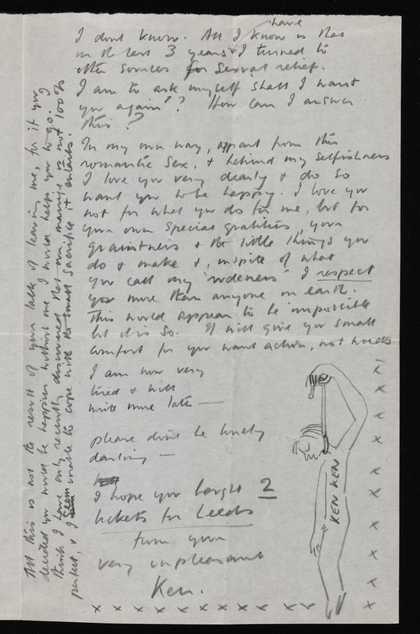 I dont know. All I know is that
have
in the last 3 years I turned to
other sources for Sexual relief.
I am to ask myself shall I want
you again? How can I answer
this?
In my own way, appart from this
romantic Sex, & behind my selfishness
I love you very dearly & do so
want you to be happy. I love you
not for what you do for me, but for
your own special qualities, your
quaintness & the little things you
do & make &, inspite of what
you call my 'rudeness' I respect
you more than anyone on earth.
This would appear to be impossible
but it is so. It will give you small
comfort for you want action, not words
I am now very
tired & will
write more later —
please dont be lonely
darling —
I hope you bought 2
tickets for Leeds
from your
very unpleasant
Ken.
x x x x x x x x x x x x x
KEN KEN
x x x x x x x x x
All this is not the result of your talk of leaving me, for if you
decided you would be happier without me I would help you to go.
think I have only recently discovered that our marriage is not 100%
perfect, & I seem unable to cope with the small sacrifices it entails.